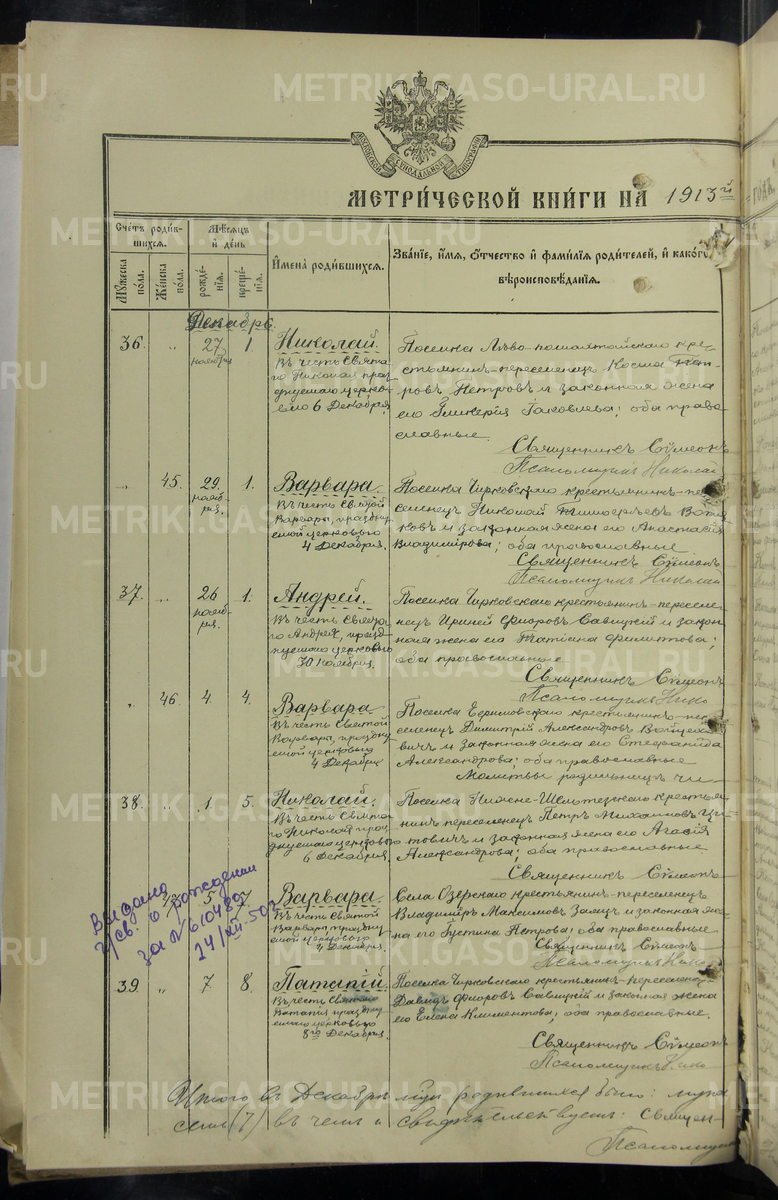 МОСКОВСКОЙ СѴНОДАЛЬНОЙ ТИПОГРАФІИ
МЕТРИ́ЧЕСКОЙ КНИ́ГИ НА 1913й
Сче́тъ роди́вшихся.
Мѣ́сяцъ и҆ де́нь
И҆мена̀ роди́вшихся.
Зва́нїе, и҆́мя, ѻ҆́тчество и҆ фами́лїя роди́телей, и҆ како́гѡ
вѣроисповѣ́данїя.
Мꙋ́жеска по́ла.
Же́нска по́ла.
рожде́нїя.
креще́нїя.
Декабрь.
36. „ 27 ноября 1. Николай.
Въ честь Свята-
го Николая праз-
днуемаго церко-
вію 6 Декабря
Поселка кре-
стьянинъ-переселенецъ Косма Пет-
ровъ Петровъ и законная жена
его Гликерія Іаковлева; оба право-
славные.
Священникъ Сѵмеонъ
Псаломщикъ Николай
„ 45. 29. ноября. 1. Варвара
Въ честь Святой
Варвары, праздну-
емой церковью
4 Декабря.
Поселка Чирковскаго крестьянинъ-пере-
селенецъ Николай
ковъ и законная жена его Анастасія
Владимірова; оба православные.
Священникъ Сѵмеонъ
Псаломщикъ Николай
37. „ 26 ноября. 1. Андрей.
Въ честь Свята-
го Андрея, празд-
нуемаго церковью
30 ноября.
Поселка Чирковскаго крестьянинъ-пересел-
енецъ Ириней Флоровъ Савицкій и закон-
ная жена его Татіана Филиппова;
оба православные
Священникъ Сѵмеонъ
Псаломщикъ Нико
„ 46. 4. 4. Варвара
Въ честь Святой
Варвары, праздну-
емой церковью
4 Декабря
Поселка Ефимовскаго крестьянинъ-пере-
селенецъ Димитрій Александровъ Войцехо-
вичъ и законная жена его Стефанида
Александрова; оба православные
Молитвы родильницъ чи-
38. „ 1. 5. Николай.
Въ честь Свята-
го Николая праз-
днуемаго церковью
6 Декабря
Поселка крестья-
нинъ переселенецъ Петръ Михаиловъ
товичъ и законная жена его Агафія
Александрова; оба православные.
Священникъ Сѵмеонъ
5 7 Варвара.
Въ честь Святой
Варвары праздну-
емой церковью
4 Декабря.
Села Озёрскаго крестьянинъ-переселенецъ
Владиміръ Максимовъ Заяцъ и законная же-
на его Іустина Петрова; оба православные
Священникъ Сѵмеонъ
Псаломщикъ Нико
Выдано
п/св. о рождении
за №610480
24/XII-50г
39. „ 7 8. Патапій.
Въ честь Святаго
Патапія празднуе-
маго церковью
8го Декабря.
Поселка Чирковскаго крестьянинъ-переселенецъ
Давидъ Флоровъ Савицкій и законная жена
его Елена Климентова; оба православные.
Священникъ Сѵмеонъ
Псаломщикъ Нико
Итого въ Декабрѣ родившихся было: муж
семь (7) въ чемъ и свидѣтельствуютъ: Священ-
Псаломщикъ
METRIKI.GASO-URAL.RU